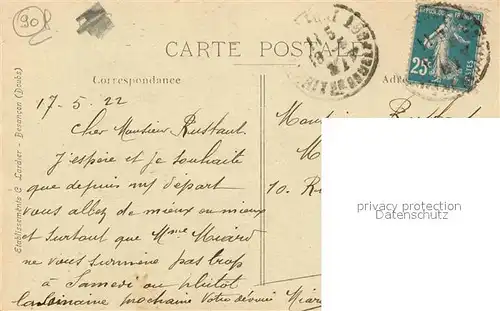 90
CARTE POSTALE
Correspondance
Adre
25c
POSTES
Etablissements C. Lardier - Besançon (Doubs)
17-5-22
Cher Monsieur Rustaut.
J'espère et je souhaite
que depuis mon départ
vous allez de mieux en mieux
et surtout que Mme Miard
ne vous surmène pas trop
à Samedi ou plutôt
la semaine prochaine Votre dévoué Miard
Monsieur Rustaut
M
10. R
privacy protection
Datenschutz